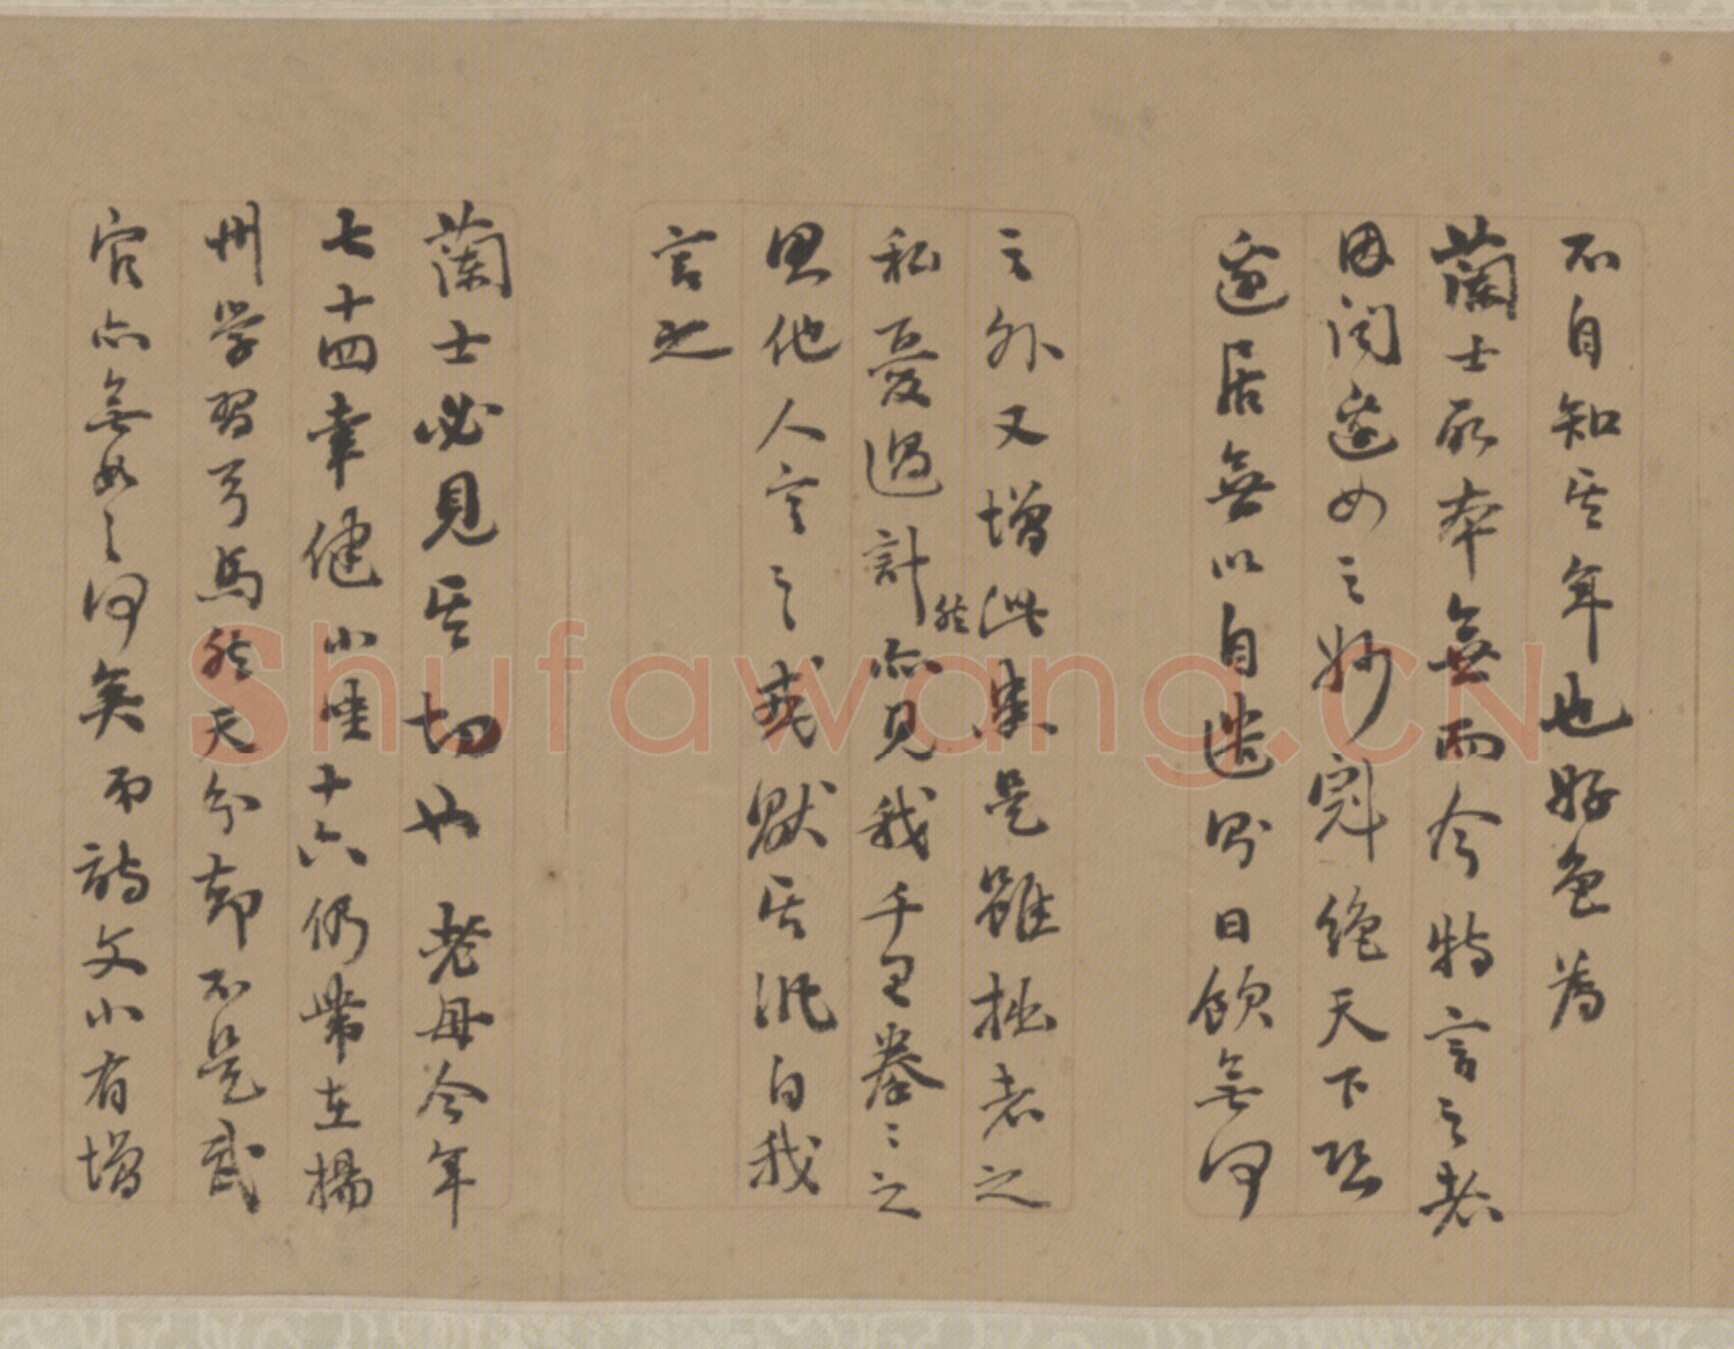 不自知其年也好色為
蘭士所本無而今特言之者
因閱邃如之妙劇絕天下恐
邃居無以自遣則日飲無何
之外又增此患是雖拙者之
私憂過計然亦見我千里拳々之
思他人言之或默居沘白我
言之
蘭士必見其切也老母今年
七十四幸健小兒十六仍帶在揚
州学習弓馬然天分却不是武
官亦無如之何矣而詩文小有增
Shufawang.CN